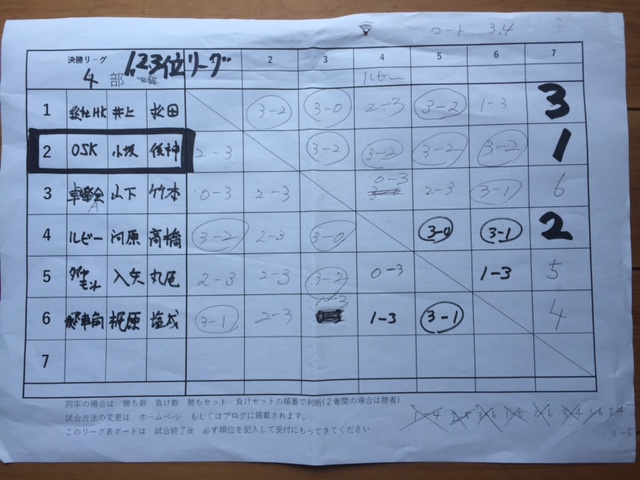 コート 3.4
決勝リーグ 1,2,3位リーグ
4 部
2 3 4 5 6 7
ルビー
1 井上 3-2 3-0 2-3 3-2 1-3 3
2 OSK 小坂 2-3 3-2 3-2 3-2 3-2 1
3 卓楽会 山下 竹本 0-3 2-3 0-3 2-3 3-1 6
4 ルビー 河原 高橋 3-2 2-3 3-0 3-0 3-1 2
5 ダイヤモンド 入矢 丸尾 2-3 2-3 3-2 0-3 1-3 5
6 梶原 3-1 2-3 1-3 1-3 3-1 4
7
同率の場合は 勝ち数 負け数 勝ちセット 負けセットの順番で判断(2者間の場合は勝者)
試合方法の変更は ホームページ もしくはブログに掲載されます。
このリーグ表ボードは 試合終了後 必ず順位を記入して受付にもってきてください